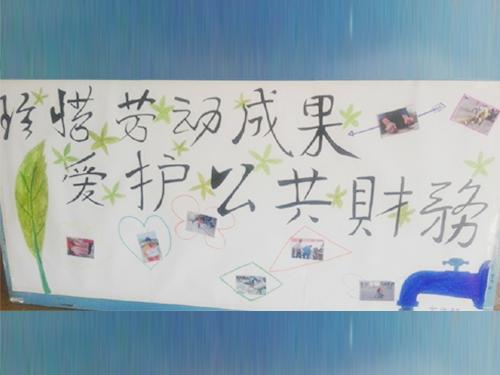 珍惜劳动成果
爱护公共財務